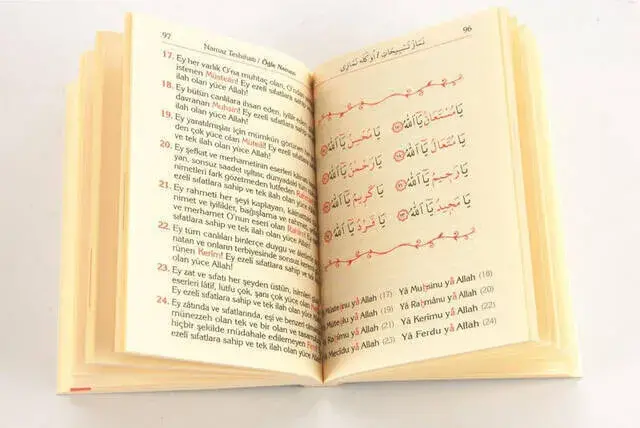 97 Namaz Tesbihatı / Öğle Namazı
17. Ey her varlık O'na muhtaç olan, O'ndan
istenen Müsteân! Ey ezelî sıfatlara sahip
ilah olan yüce Allah!
18. Ey bütün canlılara ihsan eden, iyilik
davranan Muhsin! Ey ezelî sıfatlara sahip
ve tek ilah olan yüce Allah!
19. Ey yaratılmışlar için mümkün görünen
den çok yüce olan Müteâl! Ey ezelî
ve tek ilah olan yüce Allah!
20. Ey şefkat ve merhametinin eserleri
yan, sonsuz saadet ışıtsız dünyadaki tüm
nimetleri fark gözetmeden lutfeden
Ey ezelî sıfatlara sahip ve tek ilah olan
21. Ey rahmeti her şeyi kaplayan,
nimet ve iyilikler, bağışlama ve rahmet,
ve merhamet O'nun eseri olan Rahîm!
ezelî sıfatlara sahip ve tek ilah olan yüce
22. Ey tüm canlıları binlerce duygu ve
natan ve onların terbiyesinde sonsuz
rünen Kerîm! Ey ezelî sıfatlara sahip
ilah olan yüce Allah!
23. Ey zat ve sıfatı her şeyden üstün, isimleri
eserleri lâtif, lütfu çok, şanı çok yüce olan
Ey ezelî sıfatlara sahip ve tek ilah olan
24. Ey zâtında ve sıfatlarında, eşi ve benzeri
münezzeh olan tek ve bir olan ve
hiçbir şekilde müdahale edilemeyen
ezelî sıfatlara sahip ve tek ilah olan
olan yüce Allah!
نَمَازْ تَسْبِيحَاتِى / اُوگْلَه نَمَازِى 96
يَا مُسْتَعَانُ يَا اَللهُ ⑰ يَا مُحْسِنُ يَا اَللهُ ⑱
يَا مُتَعَالُ يَا اَللهُ ⑲ يَا رَحْمٰنُ يَا اَللهُ ⑳
يَا رَحِيمُ يَا اَللهُ ㉑ يَا كَرِيمُ يَا اَللهُ ㉒
يَا مَجِيدُ يَا اَللهُ ㉓ يَا فَرْدُ يَا اَللهُ ㉔
Müsteânu yâ Allah (17) Yâ Muhsinu yâ Allah (18)
Müteâlu yâ Allah (19) Yâ Rahmânu yâ Allah (20)
Rahîmu yâ Allah (21) Yâ Kerîmu yâ Allah (22)
Mecîdu yâ Allah (23) Yâ Ferdu yâ Allah (24)